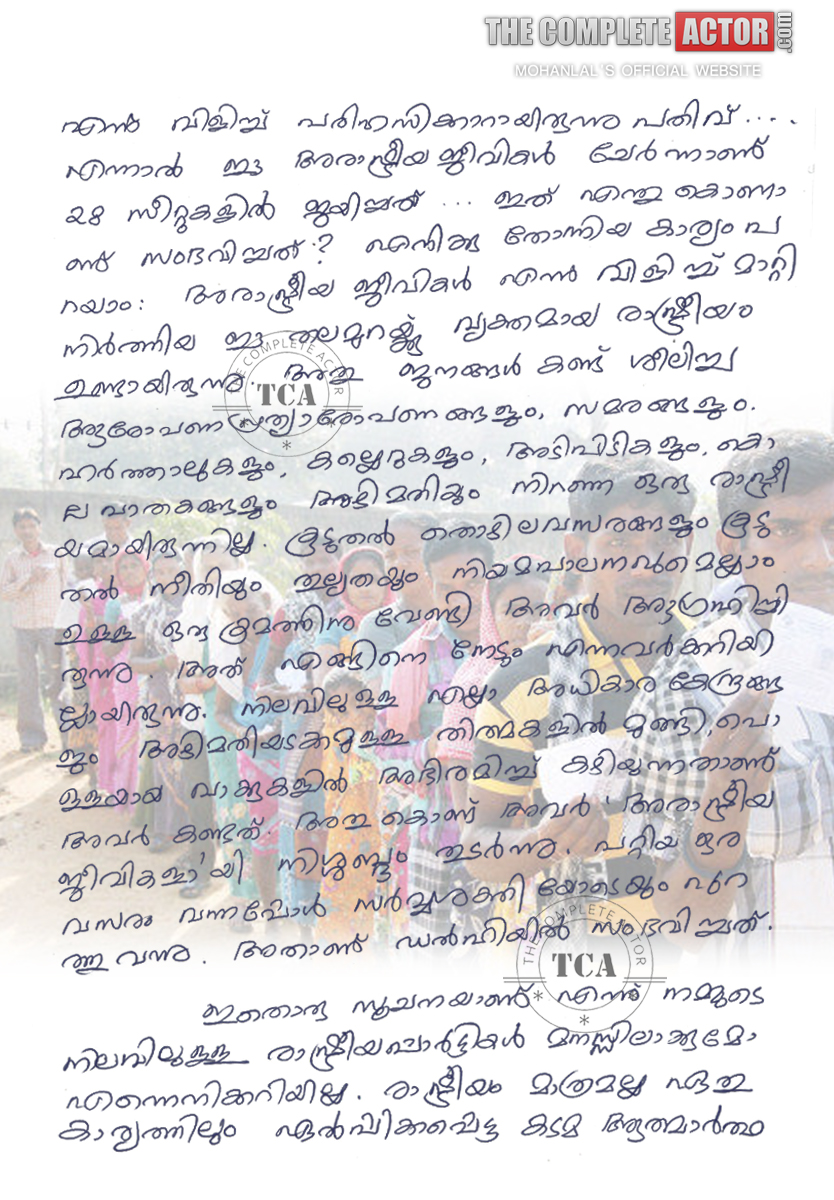 THE COMPLETE ACTOR.com
MOHANLAL'S OFFICIAL WEBSITE
എന്ന് വിളിച്ച് പരിഹസിക്കാറായിരുന്നു പതിവ്....
എന്നാൽ ഈ അരാഷ്ട്രീയ ജീവികൾ ചേർന്നാണ്
28 സീറ്റുകളിൽ ജയിച്ചത് ... ഇത് എന്തു കൊണാ
ണ്ട് സംഭവിച്ചത്? എനിക്കു തോന്നിയ കാര്യം പ
റയാം: അരാഷ്ട്രീയ ജീവികൾ എന്ന് വിളിച്ച് മാറ്റി
നിർത്തിയ ഈ തലമുറയ്ക്കു വ്യക്തമായ രാഷ്ട്രീയം
ഉണ്ടായിരുന്നു. അതു ജനങ്ങൾ കണ്ട് ശീലിച്ച
ആരോപണപ്രത്യാരോപണങ്ങളും, സമരങ്ങളും.
ഹർത്താലുകളും, കല്ലേറുകളും, അടിപിടികളും, കൊ
ല പാതകങ്ങളും അഴിമതികളും നിറഞ്ഞ ഒരു രാഷ്ട്രീ
യമായിരുന്നില്ല. കൂടുതൽ തൊഴിലവസരങ്ങളും കൂടു
തൽ നീതിയും തുല്യതയും നിയമപാലനവുമെല്ലാം
ഉള്ള ഒരു ക്രമത്തിനു വേണ്ടി അവർ ആഗ്രഹിച്ചി
രുന്നു. അത് എങ്ങിനെ നേടും എന്നവർക്കറിയി
ല്ലായിരുന്നു. നിലവിലുള്ള എല്ലാ അധികാര കേന്ദ്രങ്ങ
ളും അഴിമതിയടക്കമുള്ള തിന്മകളിൽ മുങ്ങി, പൊ
ള്ളയായ വാക്കുകളിൽ അഭിരമിച്ച് കഴിയുന്നതാണ്
അവർ കണ്ടത്. അതു കൊണ്ട് അവർ 'അരാഷ്ട്രീയ
ജീവികളാ'യി നിശ്ശബ്ദം തുടർന്നു. പറ്റിയ ഒര
വസരം വന്നപ്പോൾ സർവ്വശക്തിയോടെയും പുറ
ത്തു വന്നു. അതാണ് ഡൽഹിയിൽ സംഭവിച്ചത്.
ഇതൊരു സൂചനയാണ് എന്ന് നമ്മുടെ
നിലവിലുള്ള രാഷ്ട്രീയപാർട്ടികൾ മനസ്സിലാക്കുമോ
എന്നെനിക്കറിയില്ല. രാഷ്ട്രീയം മാത്രമല്ല ഏതു
കാര്യത്തിലും ഏൽപ്പിക്കപ്പെട്ട കടമ ആത്മാർത്ഥ
THE COMPLETE ACTOR
TCA
THE COMPLETE ACTOR
TCA